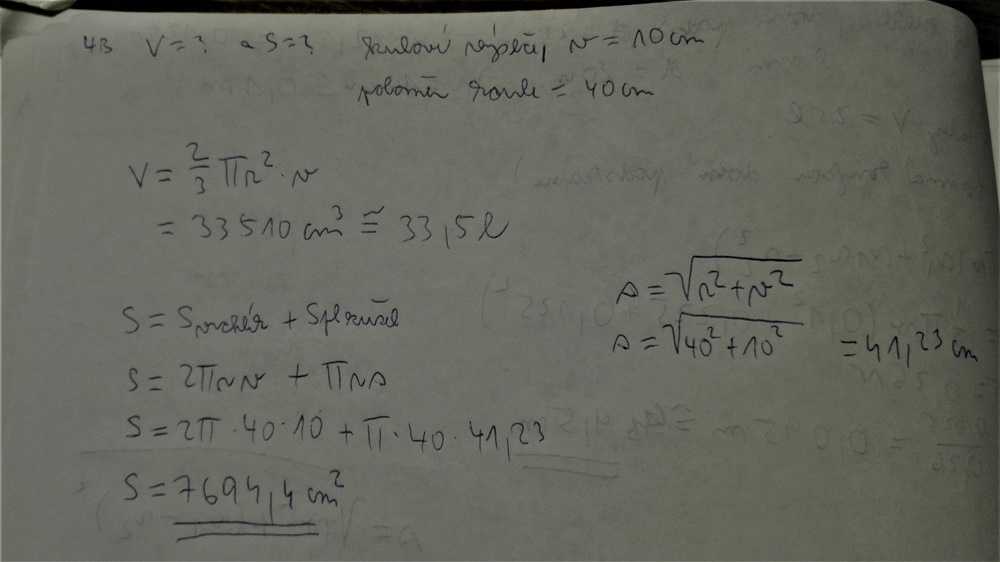 43 V = ? a S = ? kulové výseče, v = 10 cm
poloměr koule = 40 cm
V = 2/3 πr² · v
= 33510 cm³ ≅ 33,5 l
s = √r² + v²
s = √40² + 10² = 41,23 cm
S = Svrchlík + Spl kužele
S = 2πrv + πrs
S = 2π · 40 · 10 + π · 40 · 41,23
S = 7694,4 cm²